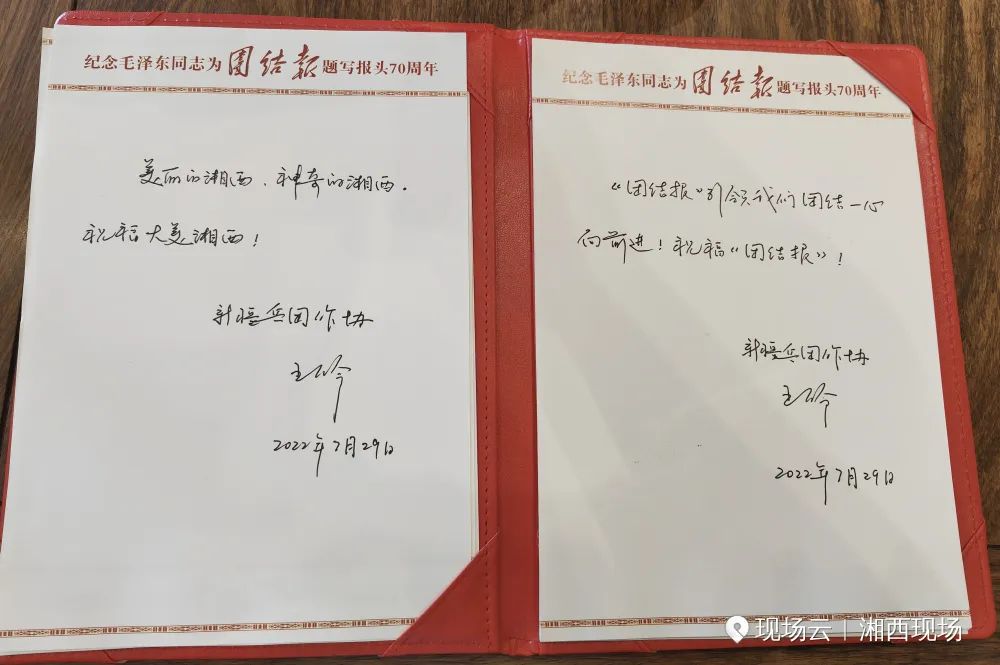 纪念毛泽东同志为团结报题写报头70周年
美丽的湘西、神奇的湘西.
祝福大美湘西!
新疆兵团作协
2022年7月29日
纪念毛泽东同志为团结报题写报头70周年
“团结报”引领我们团结一心
向前进!祝福“团结报”!
新疆兵团作协
2022年7月29日
现场云|湘西现场